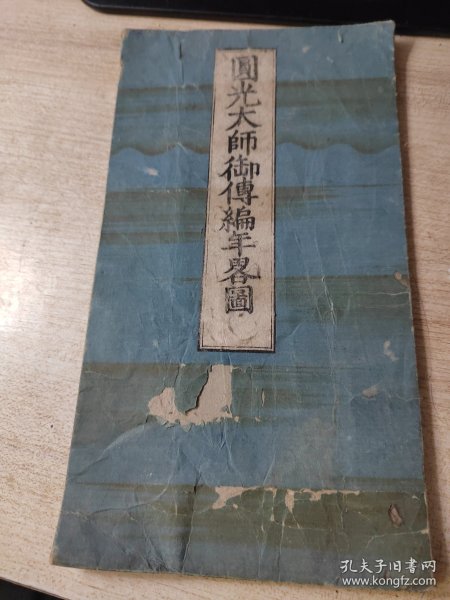 圓光大師御傳編年畧圖
孔夫子旧书网
www.kongfz.com